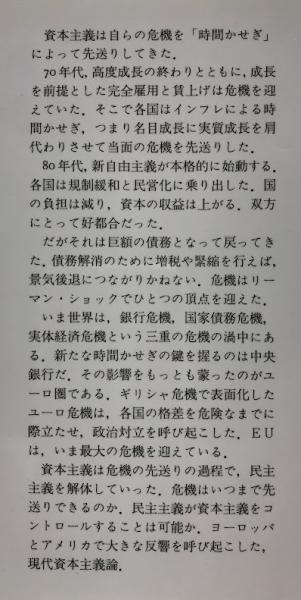 資本主義は自らの危機を「時間かせぎ」
によって先送りしてきた．
70年代，高度成長の終わりとともに，成長
を前提とした完全雇用と賃上げは危機を迎
えていた．そこで各国はインフレによる時
間かせぎ，つまり名目成長に実質成長を肩
代わりさせて当面の危機を先送りした．
80年代，新自由主義が本格的に始動する．
各国は規制緩和と民営化に乗り出した．国
の負担は減り，資本の収益は上がる．双方
にとって好都合だった．
だがそれは巨額の債務となって戻ってき
た．債務解消のために増税や緊縮を行えば，
景気後退につながりかねない．危機はリー
マン・ショックでひとつの頂点を迎えた．
いま世界は，銀行危機，国家債務危機，
実体経済危機という三重の危機の渦中にあ
る．新たな時間かせぎの鍵を握るのは中央
銀行だ．その影響をもっとも蒙ったのがユ
ーロ圏である．ギリシャ危機で表面化した
ユーロ危機は，各国の格差を危険なまでに
際立たせ，政治対立を呼び起こした．EU
は，いま最大の危機を迎えている．
資本主義は危機の先送りの過程で，民主
主義を解体していった．危機はいつまで先
送りできるのか．民主主義が資本主義をコ
ントロールすることは可能か．ヨーロッパ
とアメリカで大きな反響を呼び起こした，
現代資本主義論．